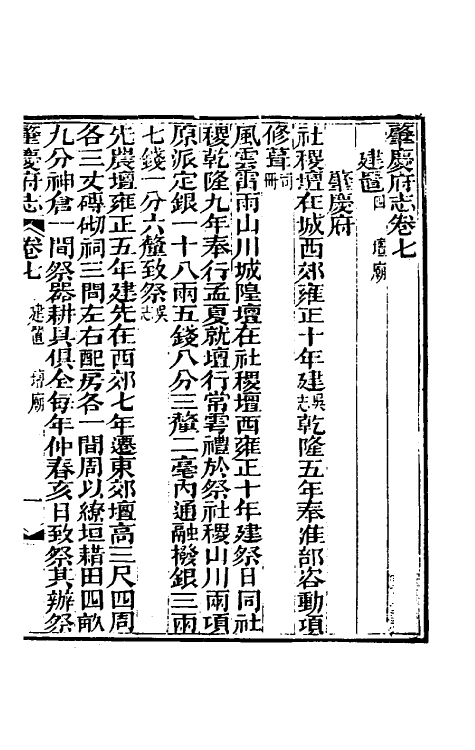 肇慶府志卷七
建置四 壇廟
肇慶府
社稷壇在城西郊雍正十年建吳志乾隆五年奉准部咨動項
修葺司冊
風雲雷雨山川城隍壇在社稷壇西雍正十年建祭日同社
稷乾隆九年奉行孟夏就壇行常雩禮於祭社稷山川兩項
原派定銀一十八兩五錢八分三釐二毫內通融撥銀三兩
七錢一分六釐致祭吳志
先農壇雍正五年建先在西郊七年遷東郊壇高三尺四周
各三丈磚砌祠三間左右配房各一間周以繚垣耤田四畝
九分神倉一間祭器耕具俱全每年仲春亥日致祭其辦祭
肇慶府志 卷七 建置 壇廟 一